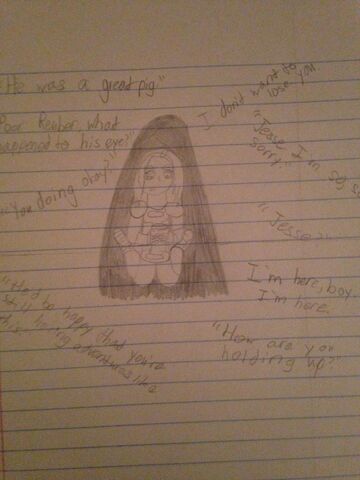 "He was a great pig"
Poor Reuben, what
happened to his eye?"
"You doing okay?"
"Had to happy that you're
still having adventures like
this"
I don't want to
lose you
"Jesse I'm so, so
sorry"
"Jesse?"
I'm here, boy
I'm here.
"How are you
holding up?"